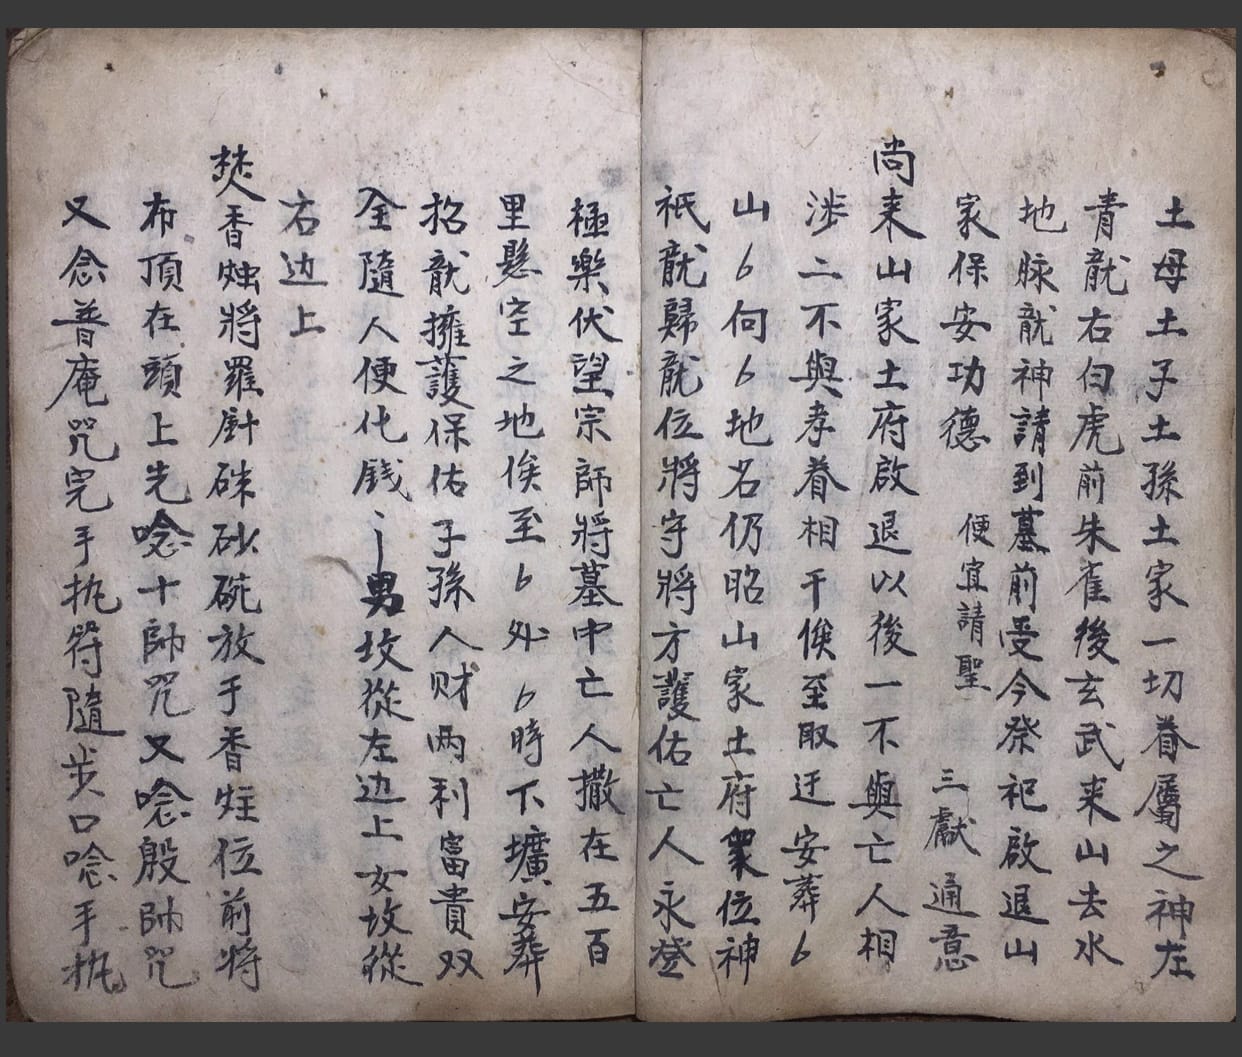 土母土子土孫土家一切眷屬之神左
青龍右白虎前朱雀後玄武来山去水
地脉龍神請到墓前受今祭祀啟退山
家保安功德 便宜請聖 三獻通意
尚来山家土府啟退以後一不與亡人相
涉二不與孝眷相干俟至取迁安葬ム
山ム向ム地名仍昭山家土府衆位神
祇龍歸龍位將守將方護佑亡人永登
極樂伏望宗師將墓中亡人撒在五百
里懸空之地俟至ム外ム時下壙安葬
招龍擁護保佑子孫人财両利富貴双
全隨人便化錢 男坟從左边上女坟從
右边上
焚香烛將羅針硃砂碗放于香炷位前將
布頂在頭上先唸十師咒又唸殷帥咒
又念普庵咒完手执符隨步口唸手执